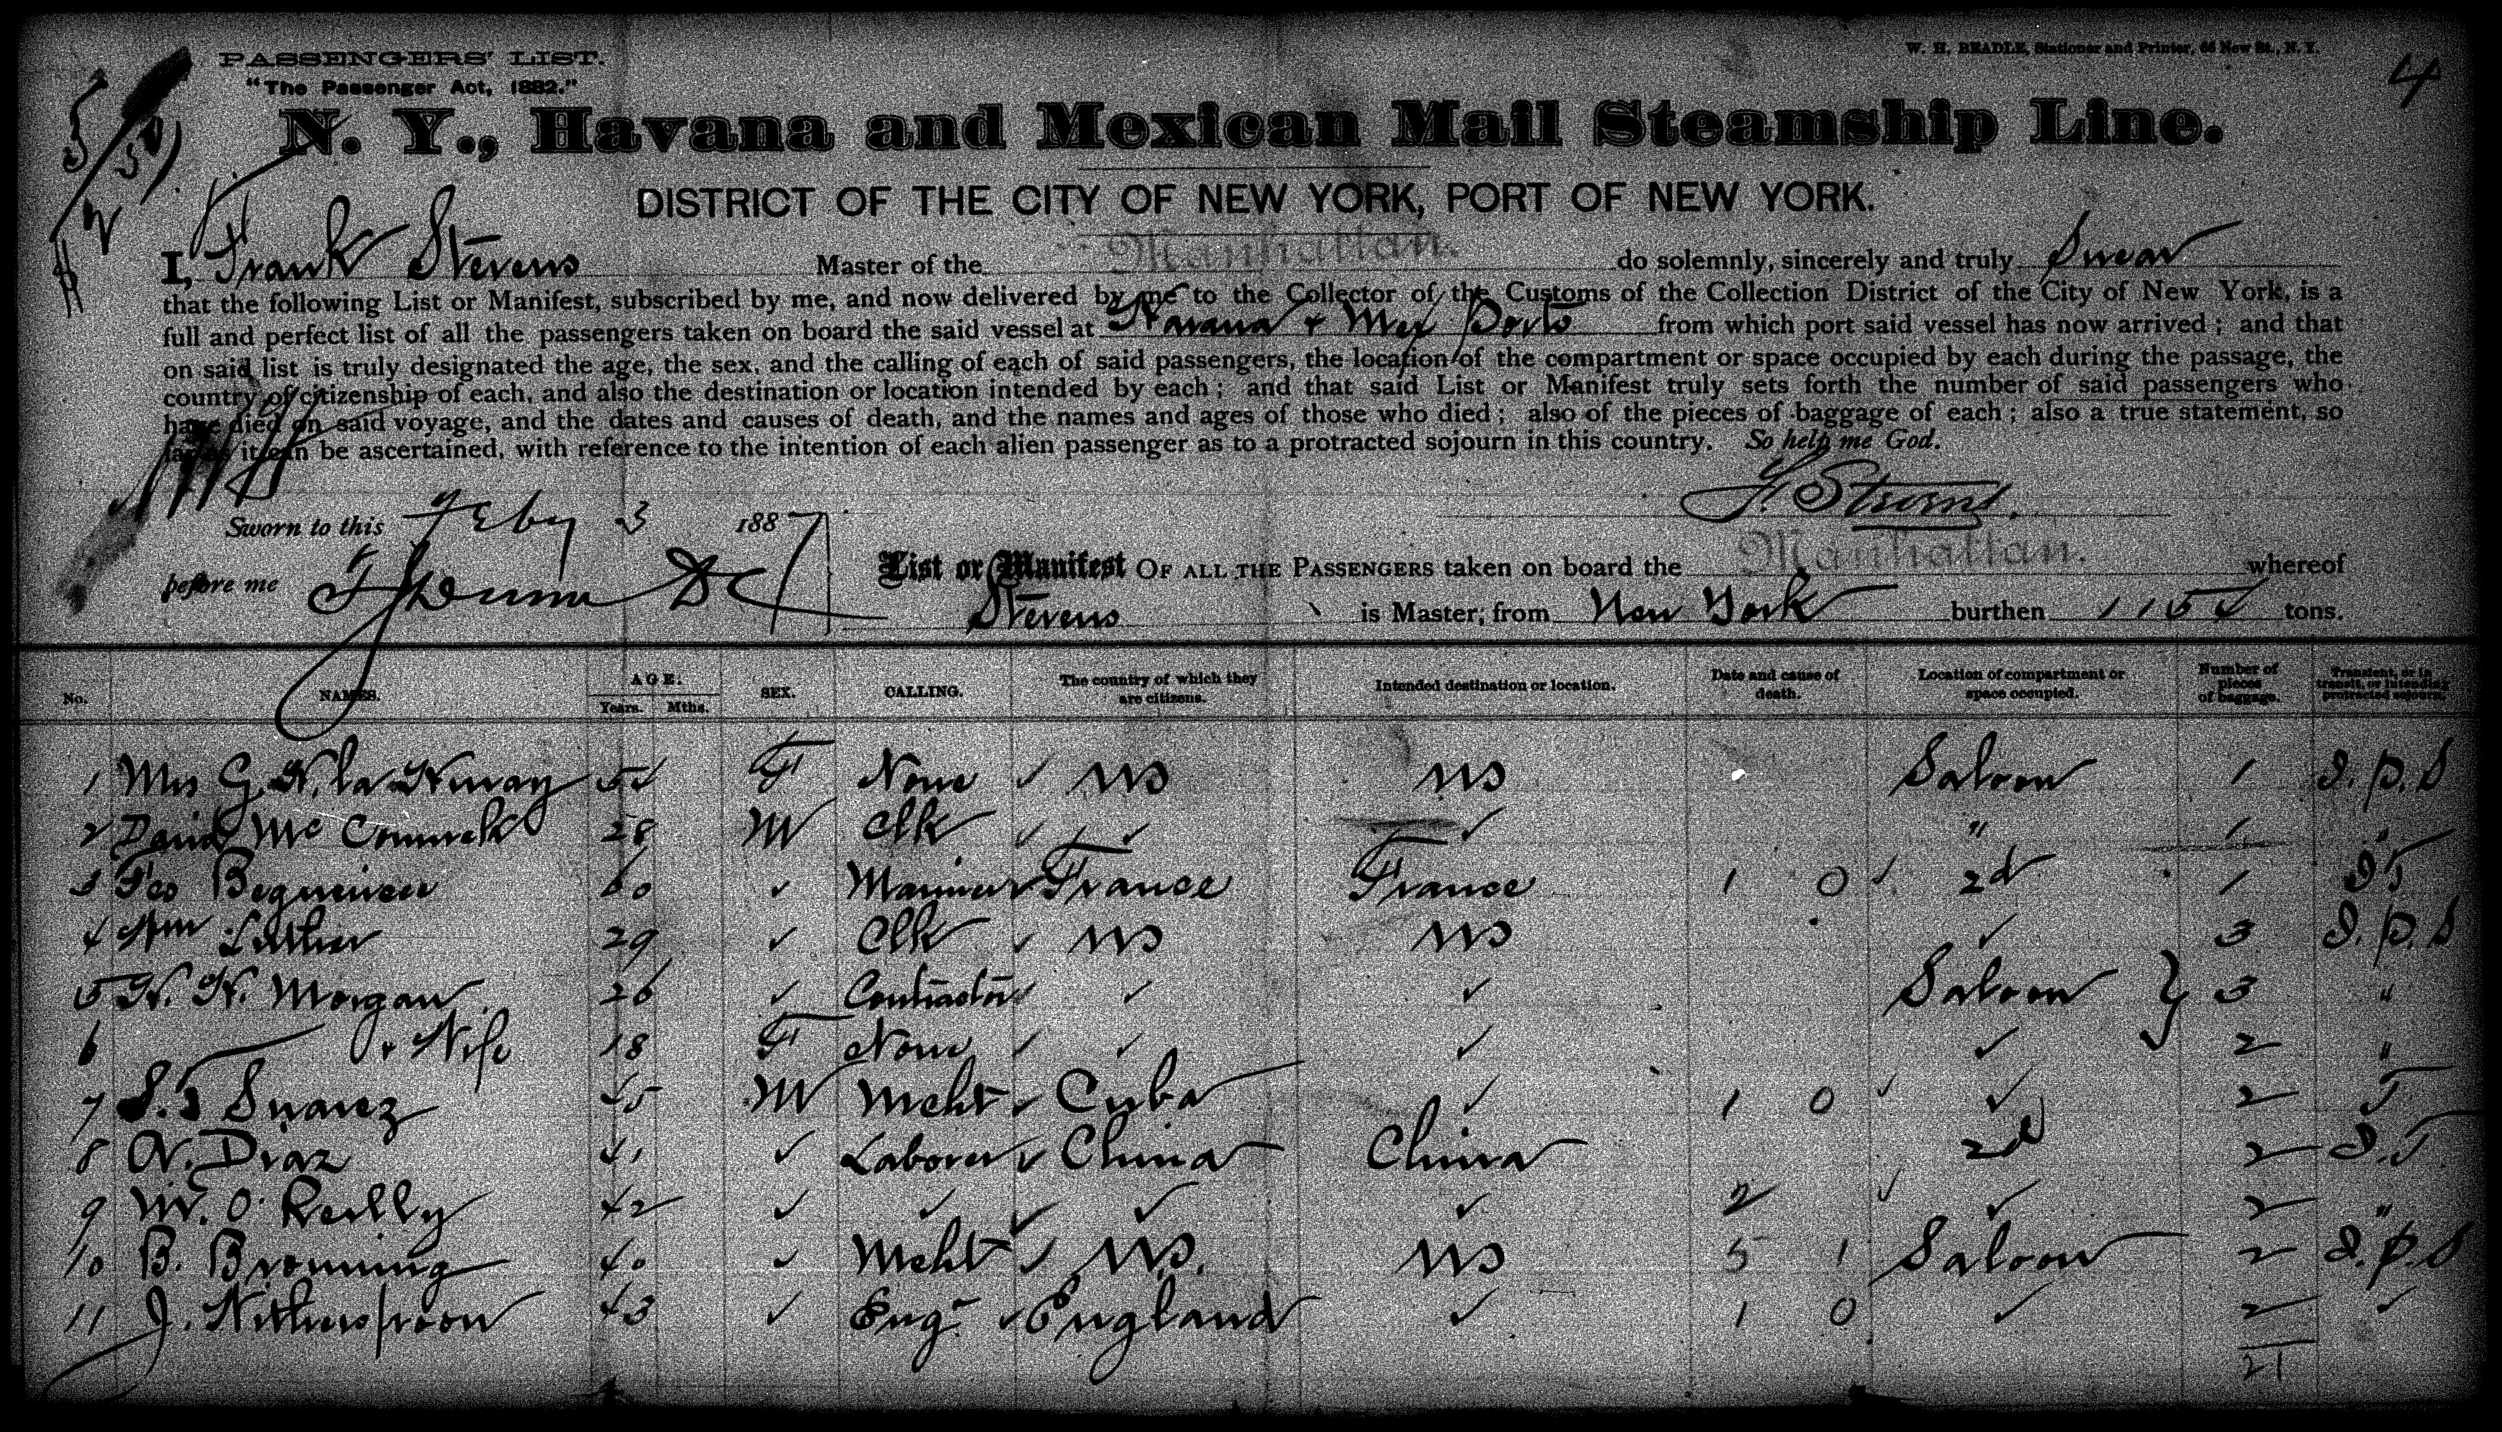 PASSENGERS' LIST.
"The Passenger Act, 1882."
W. H. BEADLE, Stationer and Printer, 66 New St., N. Y.
4
N. Y., Havana and Mexican Mail Steamship Line.
DISTRICT OF THE CITY OF NEW YORK, PORT OF NEW YORK.
I, Frank Stevens Master of the Manhattan. do solemnly, sincerely and truly Swear
that the following List or Manifest, subscribed by me, and now delivered by me to the Collector of the Customs of the Collection District of the City of New York, is a
full and perfect list of all the passengers taken on board the said vessel at Havana & Mex Ports from which port said vessel has now arrived; and that
on said list is truly designated the age, the sex, and the calling of each of said passengers, the location of the compartment or space occupied by each during the passage, the
country of citizenship of each, and also the destination or location intended by each; and that said List or Manifest truly sets forth the number of said passengers who
have died on said voyage, and the dates and causes of death, and the names and ages of those who died; also of the pieces of baggage of each; also a true statement, so
far as it can be ascertained, with reference to the intention of each alien passenger as to a protracted sojourn in this country. So help me God.
F. Stevens.
Sworn to this Feby 3 1887
before me
List or Manifest OF ALL THE PASSENGERS taken on board the Manhattan. whereof
Stevens is Master, from New York burthen 1154 tons.
No. NAMES. AGE. Years. Mths. SEX. CALLING. The country of which they are citizens. Intended destination or location. Date and cause of death. Location of compartment or space occupied. Number of pieces of baggage. Transient, or in transit, or intending protracted sojourn.
1 Mrs G. H. 54 F None ✓ US US Saloon 1 I. P. S
2 David Mc 28 M Clk ✓ ✓ ✓ " 1 "
3 Fco 60 ✓ Mariner ✓ France France 1 0 ✓ 2d 1 I T
4 Wm Luther 29 ✓ Clk ✓ US US ✓ 3 I. P. S
5 H. H. Morgan 26 ✓ Contractor ✓ ✓ ✓ Saloon } 3 "
6 " & Wife 18 F None ✓ ✓ ✓ ✓ 2 "
7 S. T Suarez 45 M Mcht ✓ Cuba ✓ 1 0 ✓ ✓ 2 T
8 A. Diaz 41 ✓ Laborer ✓ China China 2d 2 I. T.
9 M. O'Reilly 42 ✓ ✓ ✓ ✓ ✓ 2 ✓ ✓ 2 "
10 B. Bronning 40 ✓ Mcht ✓ U.S. US 5 1 Saloon 2 I. P. S
11 J. Witherspoon 43 ✓ Engr ✓ England ✓ 1 0 ✓ 2 ✓
21